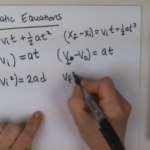 atic Equations
vit + ½at² (xf - xi) = vit + ½at²
vi) = at (vf - v0) = at
vi²) = 2ad vf